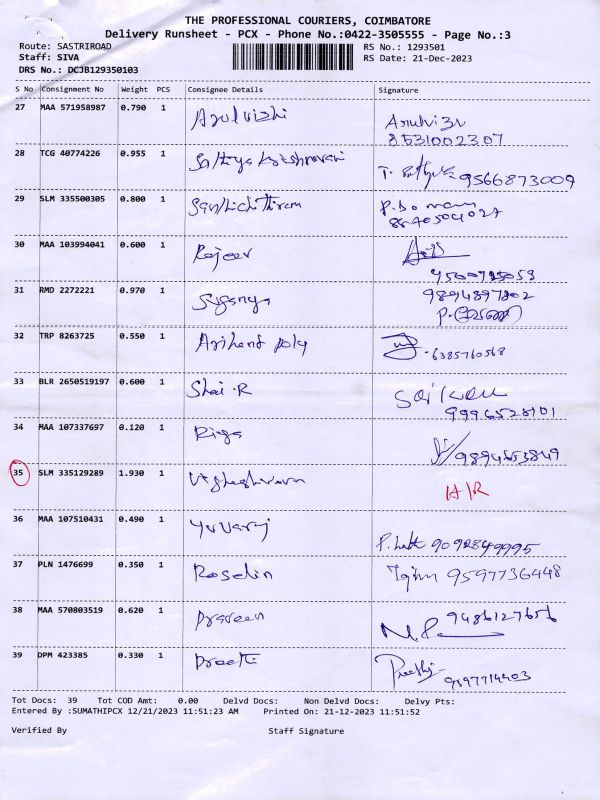 THE PROFESSIONAL COURIERS, COIMBATORE
Delivery Runsheet - PCX - Phone No.:0422-3505555 - Page No.:3
Route: SASTRIROAD RS No.: 1293501
Staff: SIVA RS Date: 21-Dec-2023
DRS No.: DCJB129350103
S No Consignment No Weight PCS Consignee Details Signature
27 MAA 571958987 0.790 1 Arulvizhi
8531002307
28 TCG 40774226 0.955 1 9566873009
29 SLM 335500305 0.800 1
30 MAA 103994041 0.600 1 Rajeev
31 RMD 2272221 0.970 1 Suganya 9894897202
32 TRP 8263725 0.550 1 Arihant poly 6385760568
33 BLR 2650519197 0.600 1 Shai.R
9996528101
34 MAA 107337697 0.120 1 9894653849
35 SLM 335129289 1.930 1 Vigheshwaran H/R
36 MAA 107510431 0.490 1 Yuvaraj 9092849995
37 PLN 1476699 0.350 1 Roselin 9597736448
38 MAA 570803519 0.620 1 Praveen 9486127656
39 DPM 423385 0.330 1 Preethi Preethi
9597714403
Tot Docs: 39 Tot COD Amt: 0.00 Delvd Docs: Non Delvd Docs: Delvy Pts:
Entered By :SUMATHIPCX 12/21/2023 11:51:23 AM Printed On: 21-12-2023 11:51:52
Verified By Staff Signature